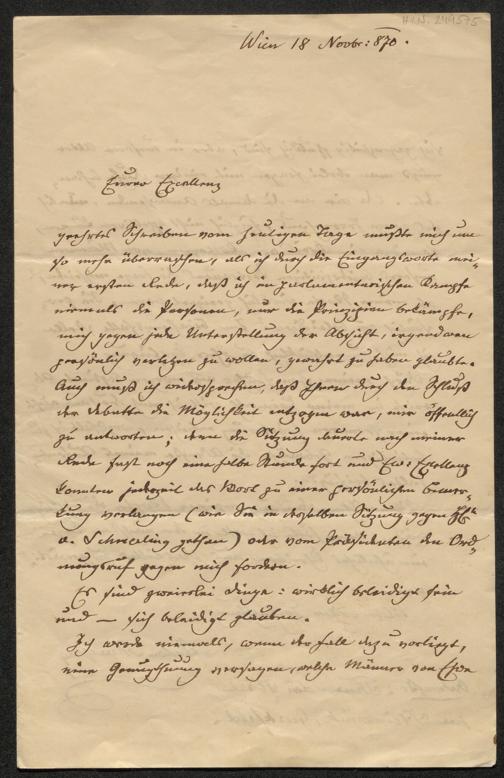 H.I.N. 249575
Wien 18 Novbr: 870.
Eurer Excellenz
geehrtes Schreiben vom heutigen Tage mußte mich um
so mehr überraschen, als ich durch die Eingangsworte mei-
ner ersten Rede, daß ich im parlamentarischen Kampfe
niemals die Personen, nur die Prinzipien bekämpfe,
mich gegen jede Unterstellung der Absicht, irgendwen
persönlich verletzen zu wollen, gewahrt zu haben glaubte.
Auch muß ich widersprechen, daß Ihnen durch den Schluß
der Debatte die Möglichkeit entzogen war, mir öffentlich
zu antworten; denn die Sitzung dauerte nach meiner
Rede fast noch eine halbe Stunde fort und Ew: Excellenz
konnten jederzeit das Wort zu einer persönlichen Bemer-
kung verlangen (wie Sie in derselben Sitzung gegen
v. Schmerling gethan) oder vom Präsidenten den Ord-
nungsruf gegen mich fordern.
Es sind zweierlei Dinge: wirklich beleidigt sein
und — sich beleidigt glauben.
Ich werde niemals, wenn der Fall dazu vorliegt,
eine Genugthuung versagen, welche Männer von Ehre